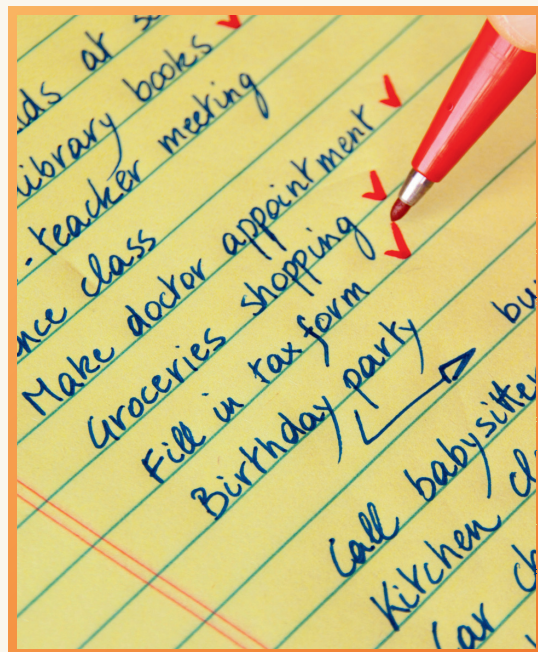 at
library books
-teacher meeting
class
Make doctor appointment
Groceries shopping
Fill in tax form
Birthday party
Call babysitter
Kitchen
Car